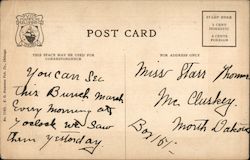 POST CARD
PLACE STAMP HERE
1 CENT DOMESTIC
2 CENTS FOREIGN
THIS SPACE MAY BE USED FOR CORRESPONDENCE
FOR ADDRESS ONLY
You can See
this Bunch March
Every Morning at
9 oclock we Saw
them yesterday
Miss Starr
Mc. Cluskey.
North Dakota
Box 151.